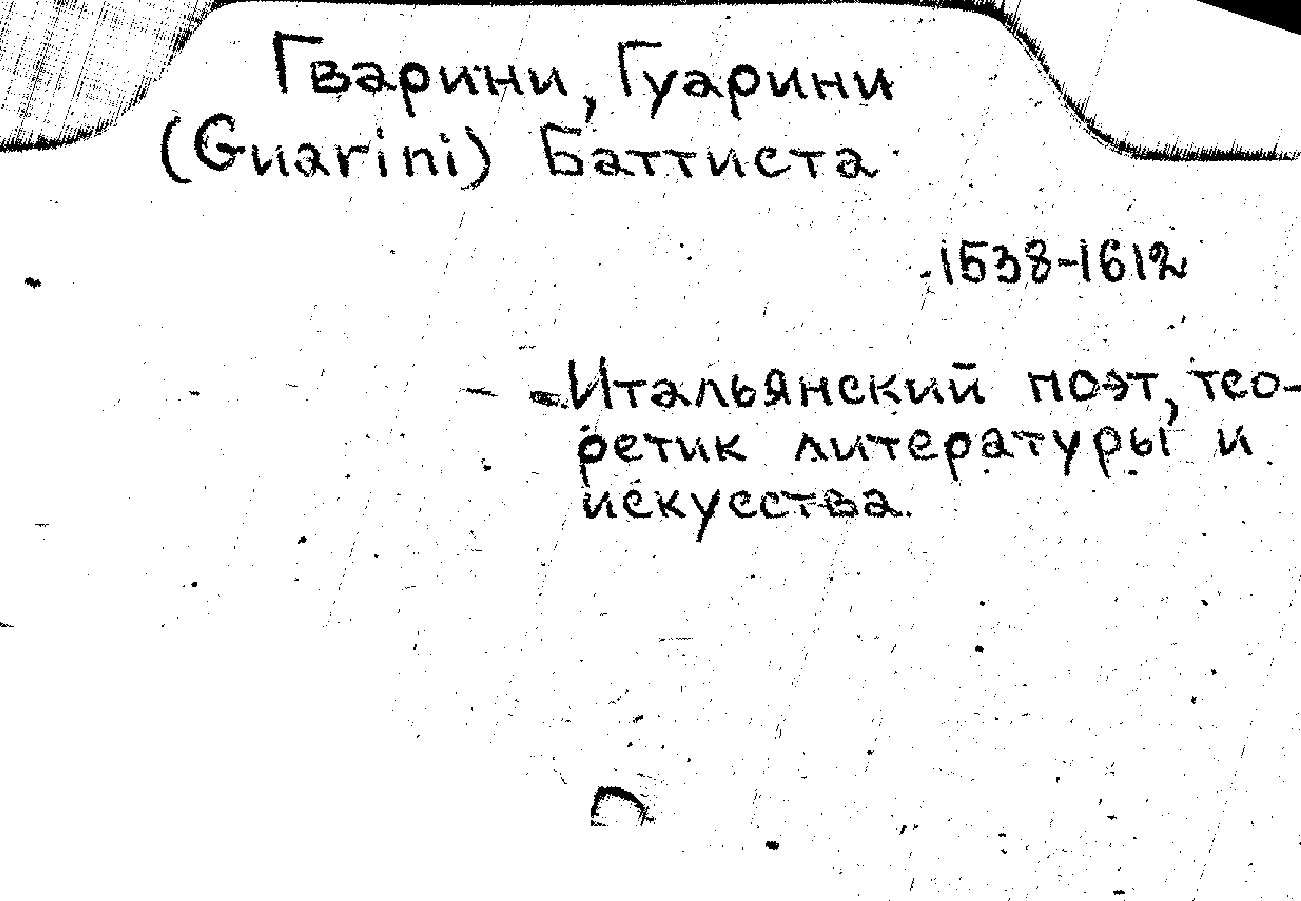 Гварини, Гуарини
(Guarini) Баттиста
1538-1612
Итальянский поэт, тео-
ретик литературы и
искусства.